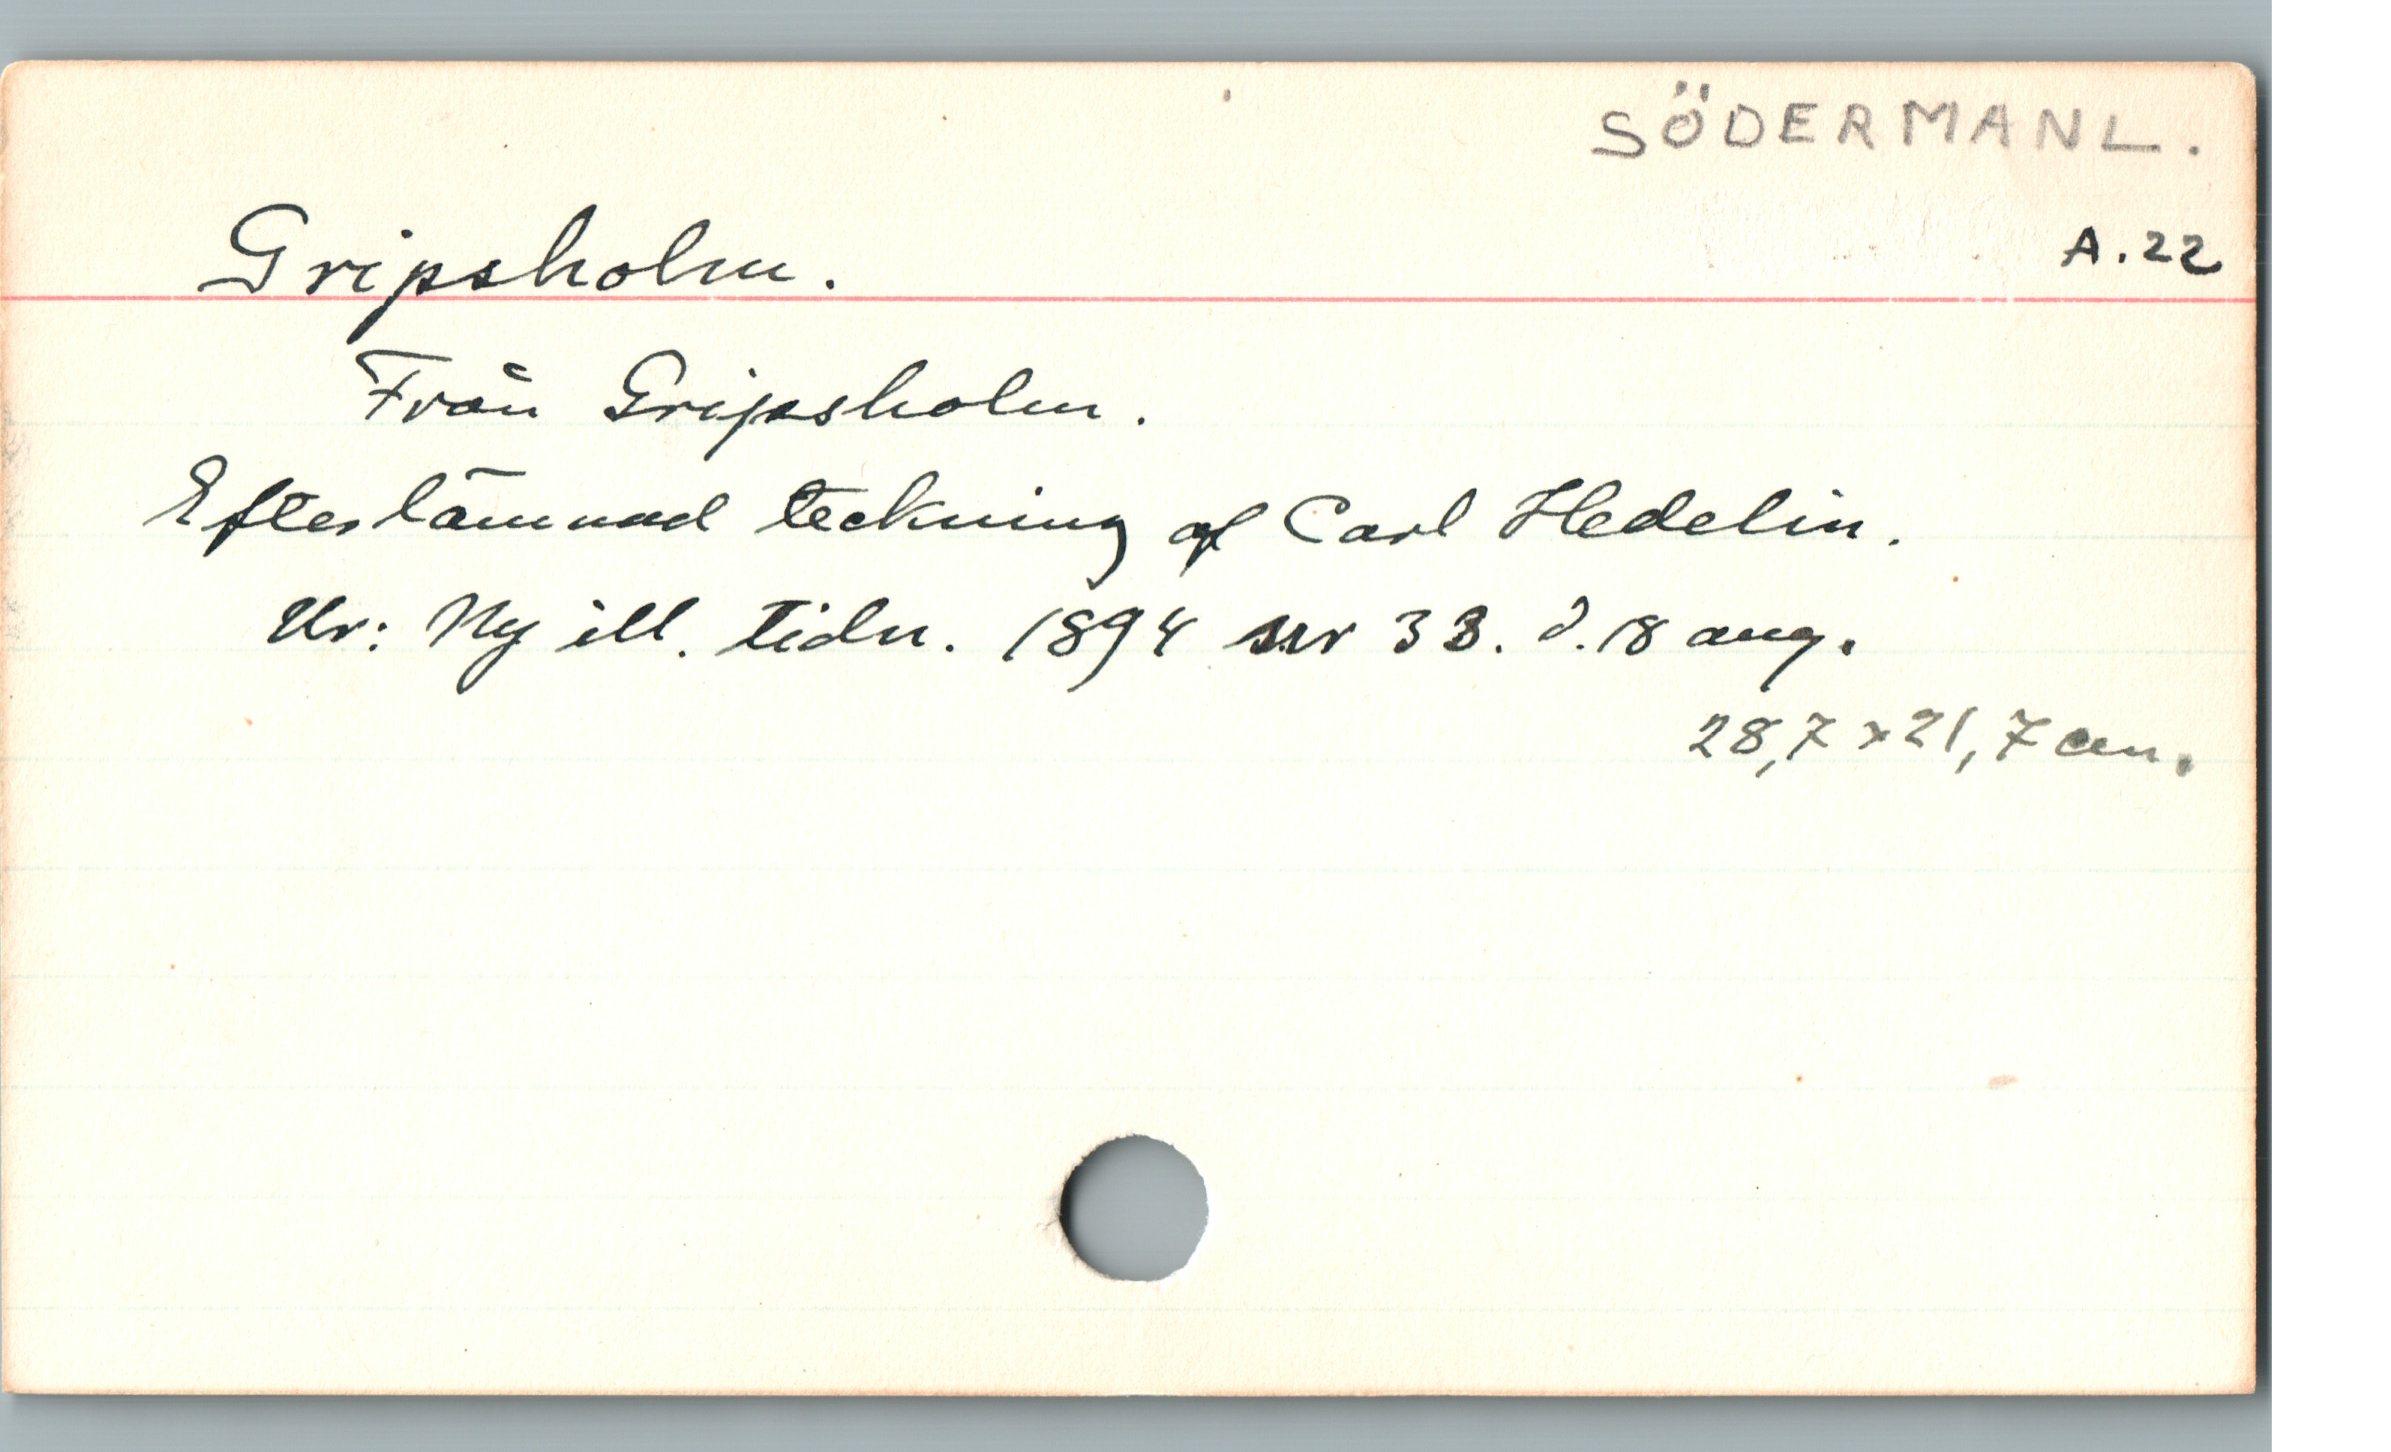 SÖDERMANL.
A.22
Gripsholm.
Från Gripsholm.
Efterlämnad teckning af Carl Hedelin.
Ur: Ny ill. tidn. 1894 nr 33. d. 18 aug.
28,7 x 21,7 cm.